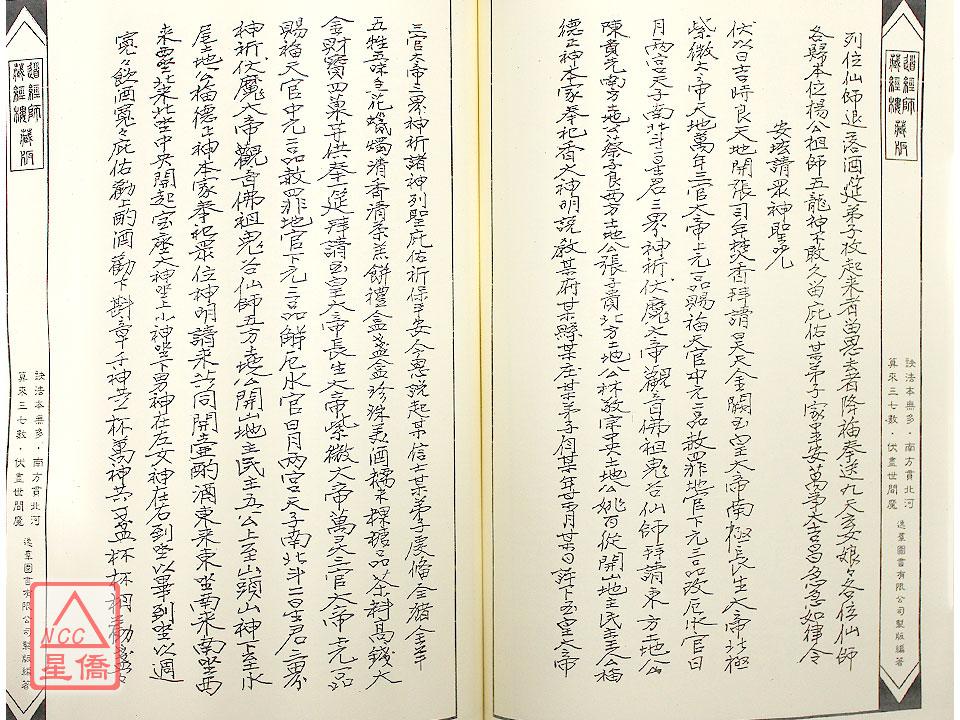 道經師藏經樓藏版
訣法本無多．南方貫北河
算來三七數．伏盡世間魔
逸羣圖書有限公司製版編著
列位仙師退落酒筵弟子改起來者當恩去者降福奉送九天玄娘々各位仙師
各歸本位楊公祖師五龍神不敢久留庇佑某弟子家門平安萬事大吉昌急急如律令
安壇請眾神聖咒
伏以日吉時良天地開張司年焚香拜請昊天金闕玉皇大帝南極長生大帝北極
紫微大帝天地萬年三官大帝上元一品賜福天官中元二品赦罪地官下元三品改厄水官日
月兩宮天子南北斗星君三界神祈伏魔大帝觀音佛祖鬼谷仙師拜請東方土地公
陳貴先南方土地公蔡子良西方土地公張子貴北方土地公林敬宗中央土地公姚百從開山地主民主公福
德正神本家奉祀香火神明說啟某府某縣某庄某弟子何某年某月某日詳下玉皇大帝
三官大帝三界神祈諸神列聖庇佑祈保平安今恩說起某信士某弟子虔備全豬全羊
五牲五味香花蠟燭清香清茶羔餅禮盒盞盒珍珠美酒糯米粿糖品茶料高錢大
金財寶四菓等供奉一筵拜請玉皇大帝長生大帝紫微大帝萬灵三官大帝上元一品
賜福天官中元二品赦罪地官下元三品解厄水官日月兩宮天子南北斗星君三界
神祈伏魔大帝觀音佛祖鬼谷仙師五方土地公開山地主民主五公上至山頭山神下至水
尾土地公福德正神本家奉祀眾位神明請來訪同開壺酌酒東來東坐南來南坐西
來西坐北來北坐中央開起宝座大神坐上小神坐下男神在左女神在右到坐以畢到坐以週
寬々飲酒寬々庇佑勸上酌酒勸下斟章千神共一杯萬神共一盞杯杯相勸盞々
道經師藏經樓藏版
訣法本無多．南方貫北河
算來三七數．伏盡世間魔
逸羣圖書有限公司製版編著
NCC
星僑